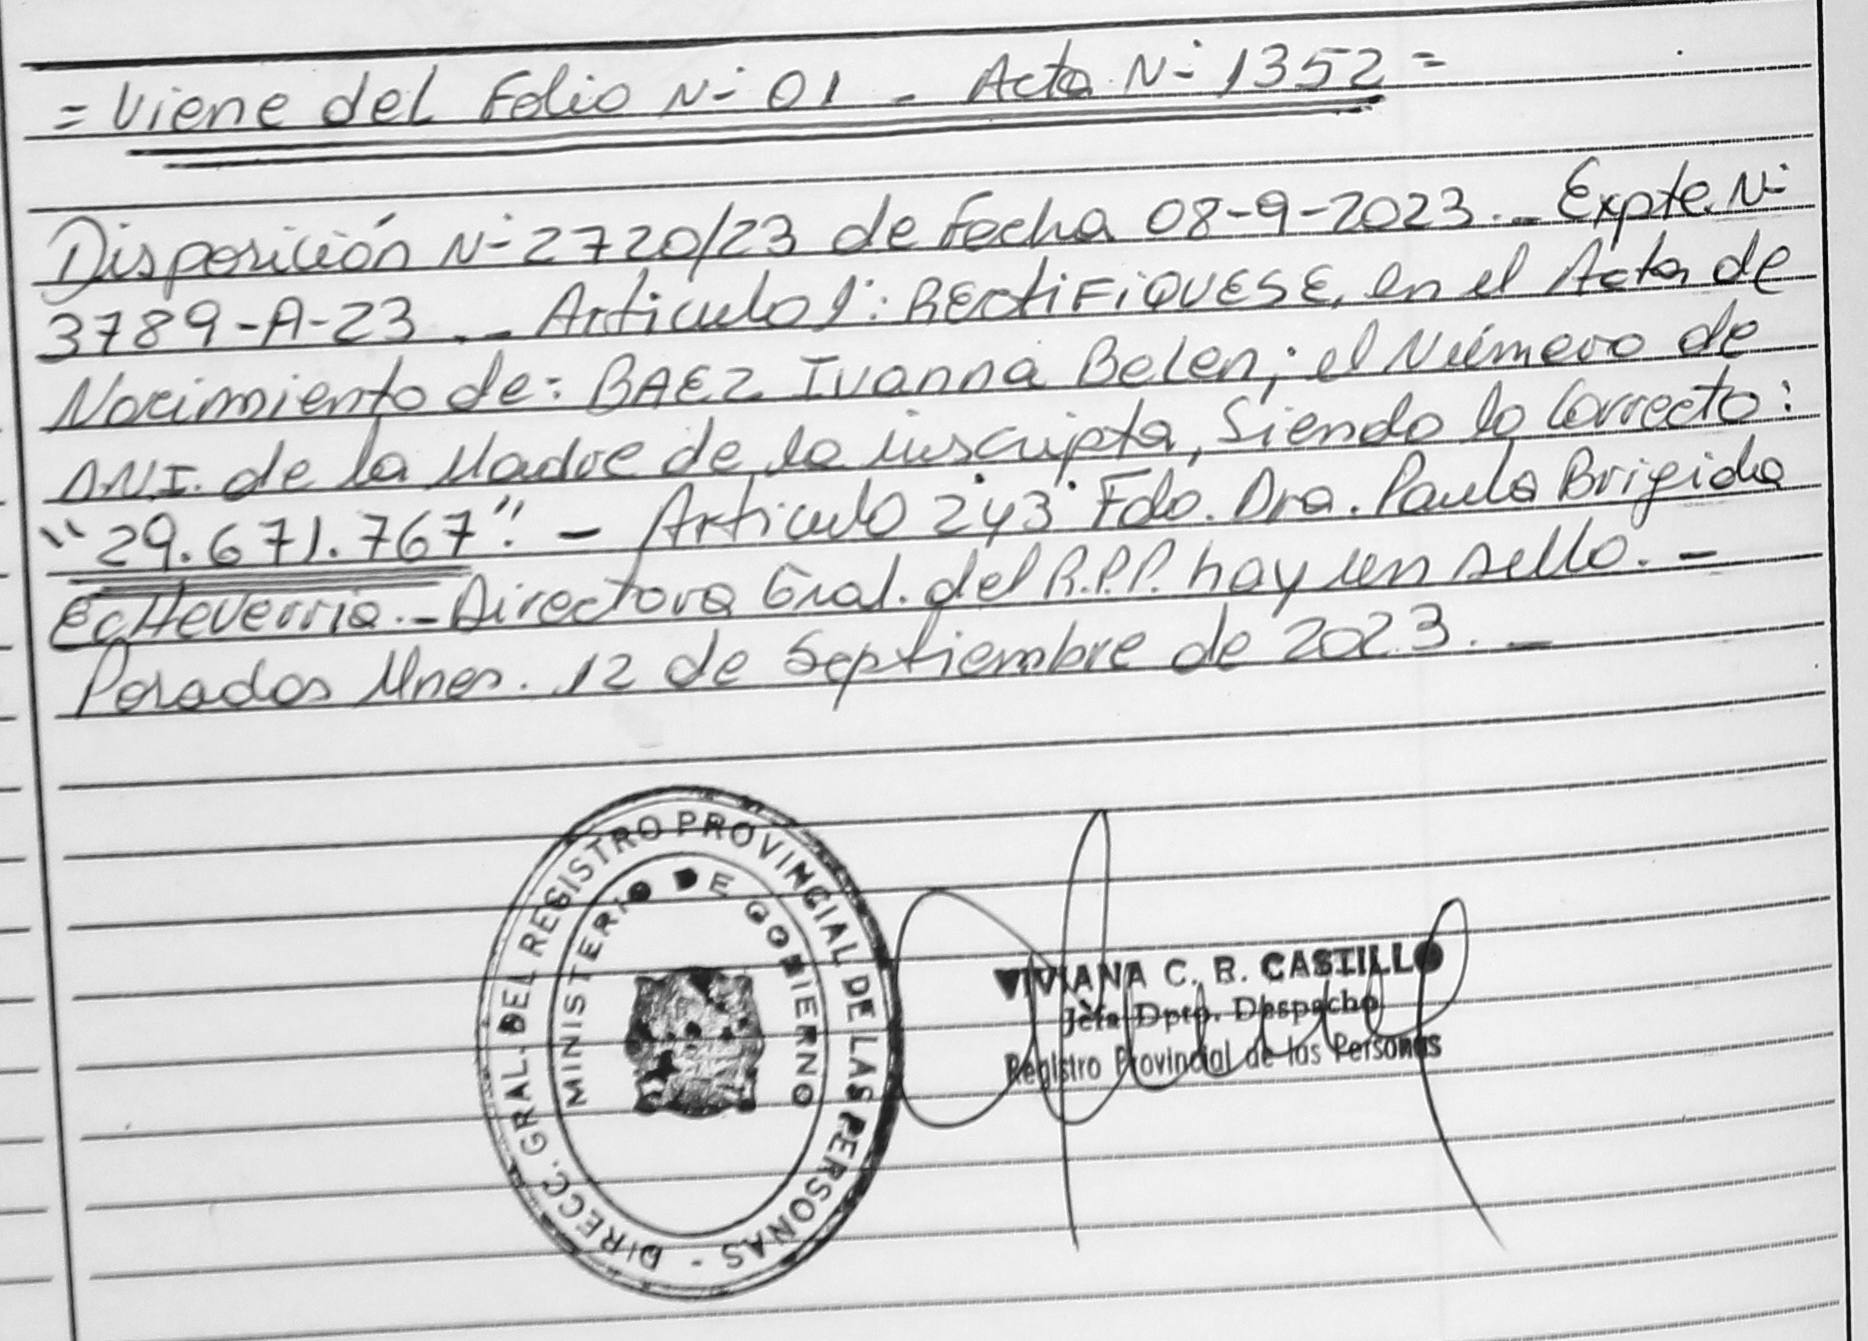 = Viene del Folio N- 01 - Acta N- 1352 =
Disposición N- 2720/23 de fecha 08-9-2023.- Expte. N-
3789-A-23.- Articulo 1°: RECTIFIQUESE, en el Acta de
Nacimiento de: BAEZ Ivanna Belen; el Número de
DNI. de la Madre de la inscripta, Siendo lo Correcto:
"29.671.767". - Articulo 2y3° Fdo. Dra. Paula Brigida
Echeverria.- Directora Gral. del R.P.P. hay un sello. -
Posadas Mnes. 12 de Septiembre de 2023. -
DIRECC. GRAL. DEL REGISTRO PROVINCIAL DE LAS PERSONAS -
MINISTERIO DE GOBIERNO
VIVIANA C. R. CASTILLO
Jefa Dpto. Despacho
Registro Provincial de las Personas